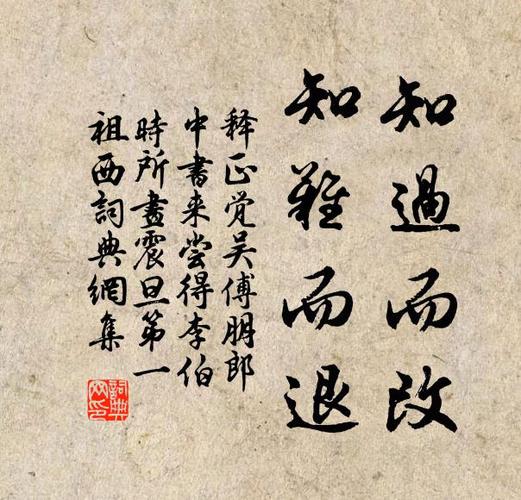 知過而改
知難而退
释正觉吴傅朋郎
中書来尝得李伯
時所畫震旦第一
祖西詞典網集
詞典网印